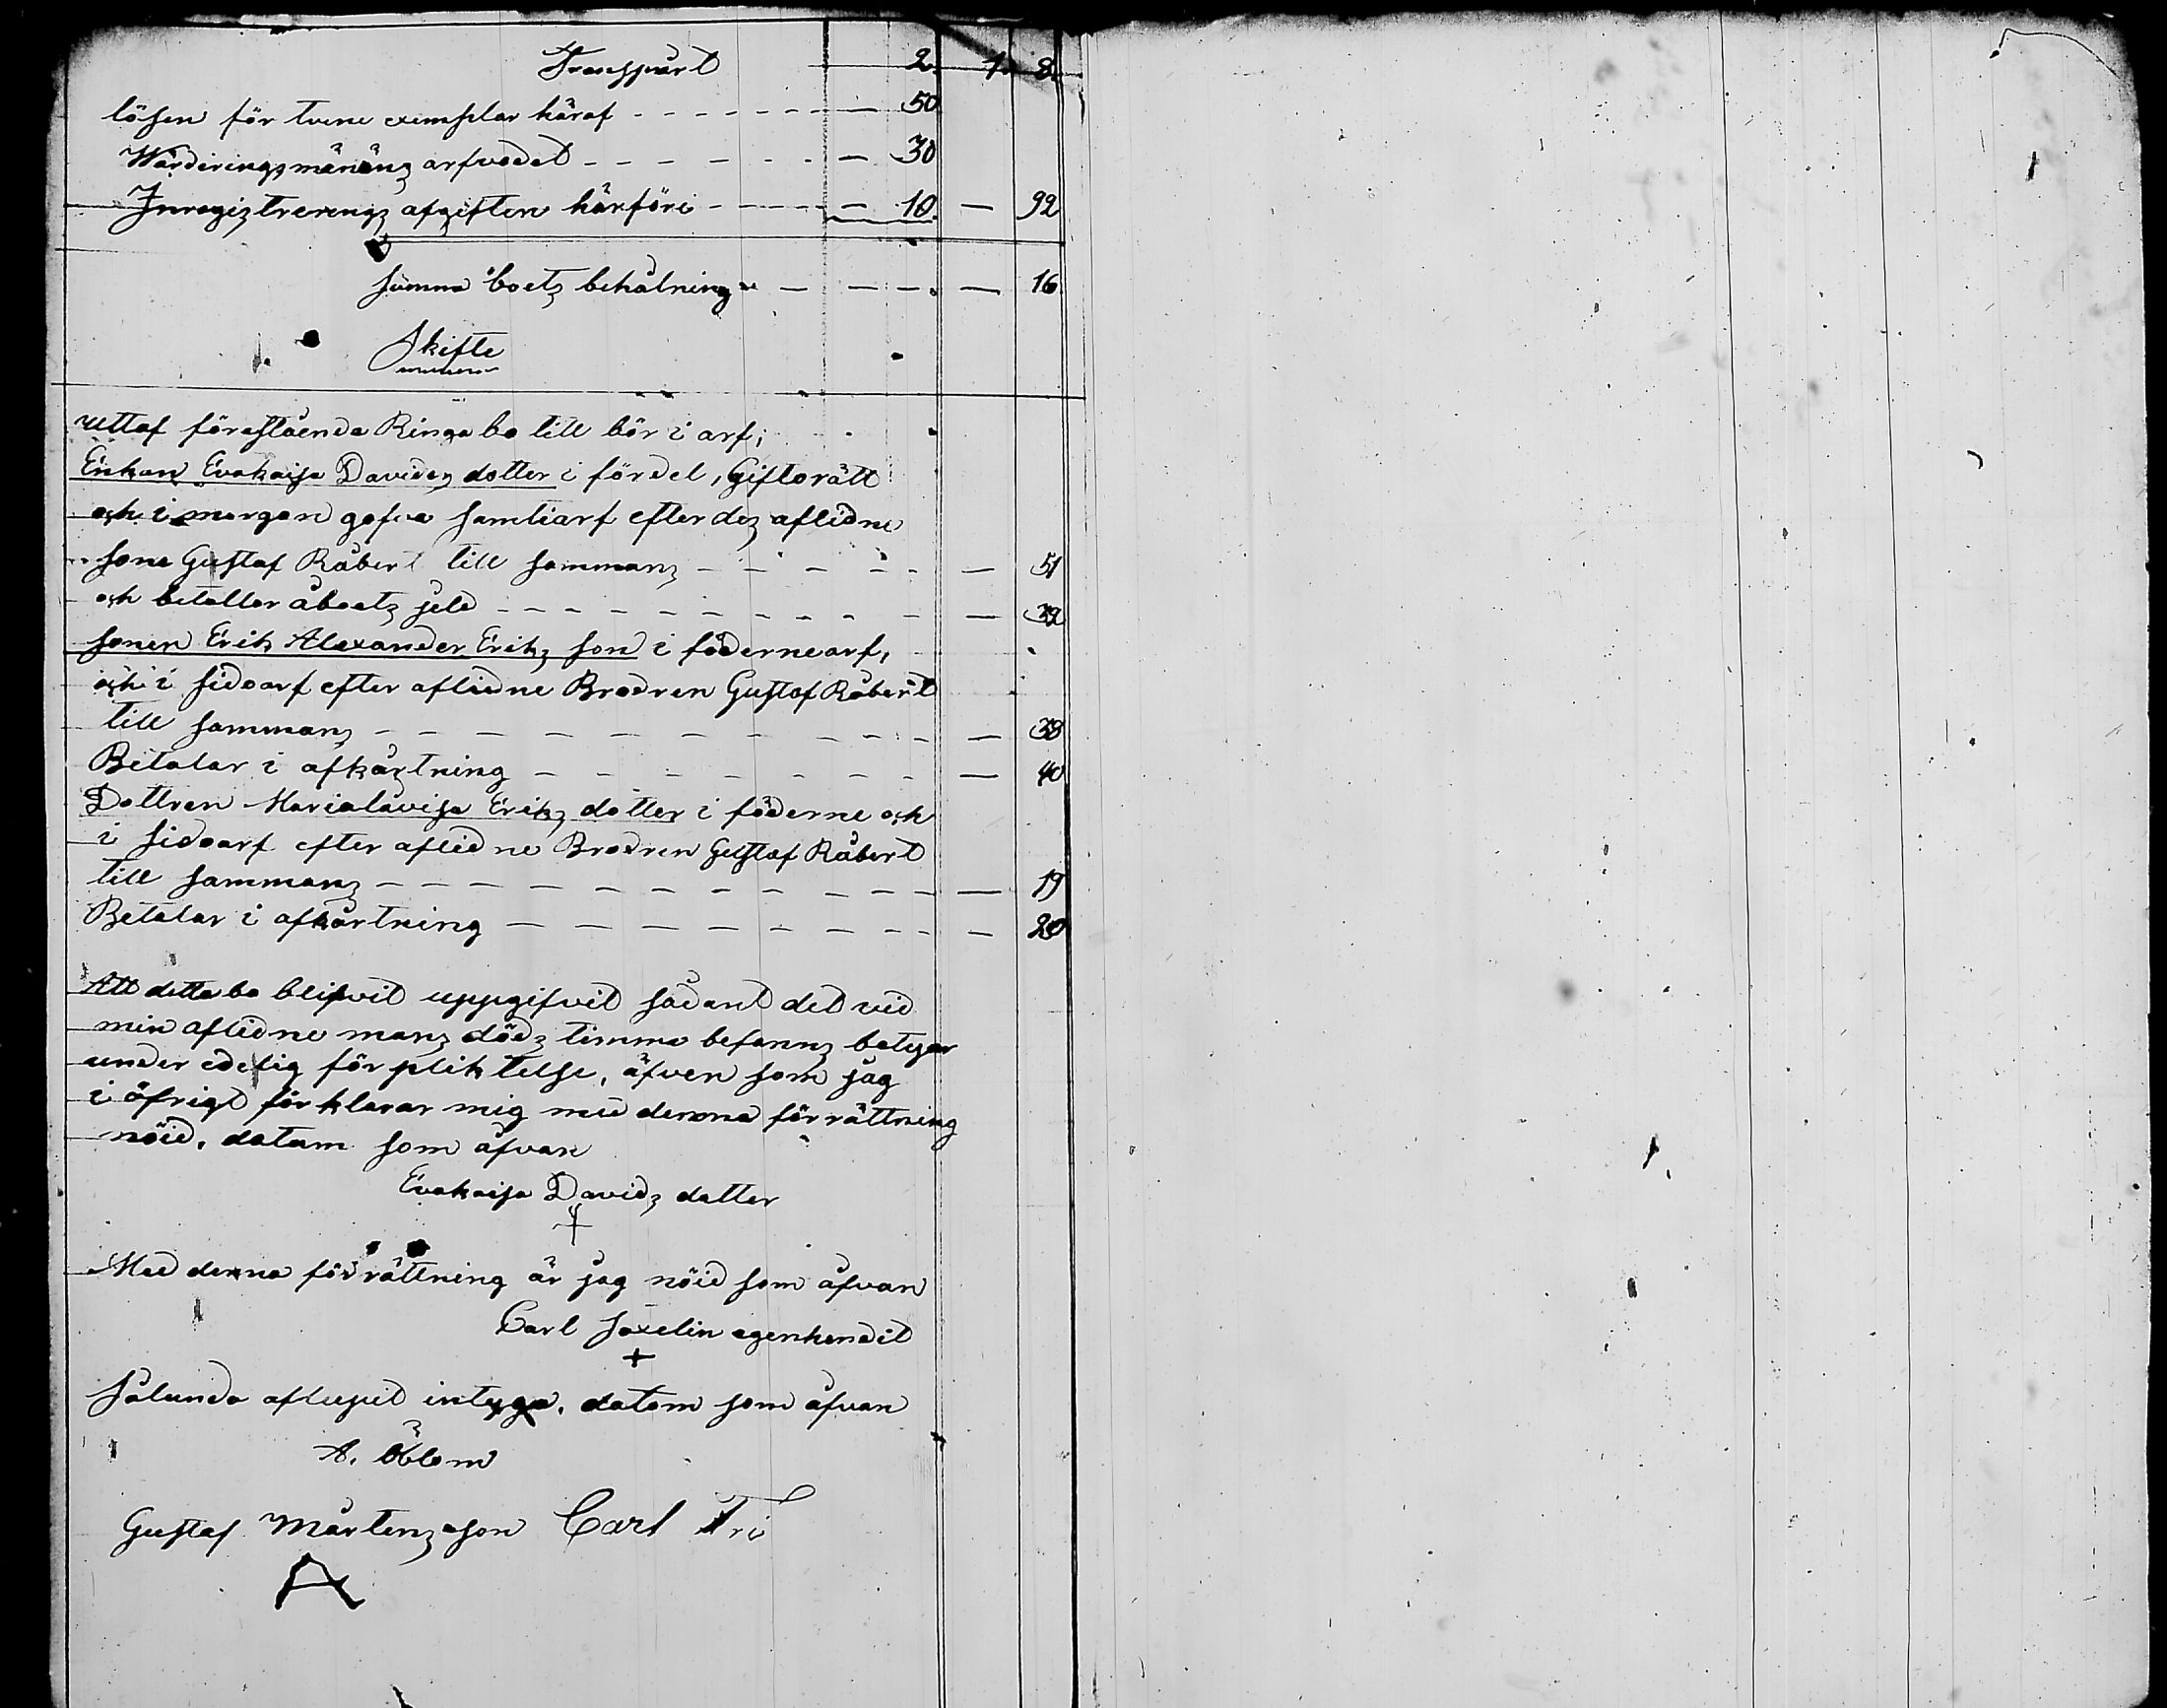 Transpårt 2. 1. 8.
lösen för tvene exemplar häraf - - - - - - - — 50
Wärderingsmänäns arfvodet - - - - - - — 30
Inregistrerings afgiften härföri - - - - - — 10. — 92
summa boets behålning - — — — . — 16
Skifte
uttaf förestående Ringa bo till bör i arf;
Enkan Evakaisa Davids dotter i fördel, Giftorätt
och i morgon gofva samtiarf efter des aflidne
sone Gustaf Råbert till sammans - - - - - — 51
och betaller åboets jeld - - - - - - - - — 32
sonen Erik Alexander Eriks son i föderne arf,
och i sidoarf efter aflidne Brodren Gustaf Råbert
till sammans - - - - - - - - - - — 38
Betalar i afkårtning - - - - - - - — 40
Dottren Marialåvisa Eriks dotter i föderne och
i sidoarf efter aflidne Brodren Gustaf Råbert
till sammans - - - - - - - - - - — 19
Betalar i afkårtning - - - - - - - - - — 20
Att detta bo blifvit uppgifvit sådant det vid
min aflidne mans döds timma befanns betygar
under edelig för pliktelse, äfven som jag
i öfrigt för klarar mig med denna för rättning
nöid, datum som åfvan
Evakaisa Davids datter
Med denna för rättning är jag nöid som åfvan
Carl Saxelin egenhendit
+
Sålunda aflupit intyga, datom som åfvan
A. Öblom
Gustaf Mårtens son Carl Fri